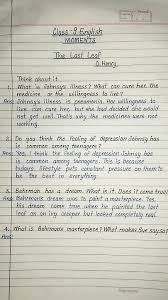 Class-9 English
MOMENTS
The Last Leaf
O.Henry
Think about it
1. What is Johnsy's illness? What can cure her, the
medicine or the willingness to live?
Ans: Johnsy's illness is pneumonia. Her willingness to
live can cure her, but she had decided she would
not get well. That's why the medicines were not
working.
2. Do you think the feeling of depression Johnsy has
is common among teenagers?
Ans: Yes, I think the feeling of depression Johnsy has
is common among teenagers. This is because
todays lifestyle puts constant pressure on them to
be the best in everything.
3. Behrman has a dream. What is it. Does it come true?
Ans: Behrman's dream was to paint a masterpiece. Yes,
his dream came true when he painted the last
leaf on an ivy creeper but looked completely real.
4. What is Behrman's masterpiece? What makes Sue say so?